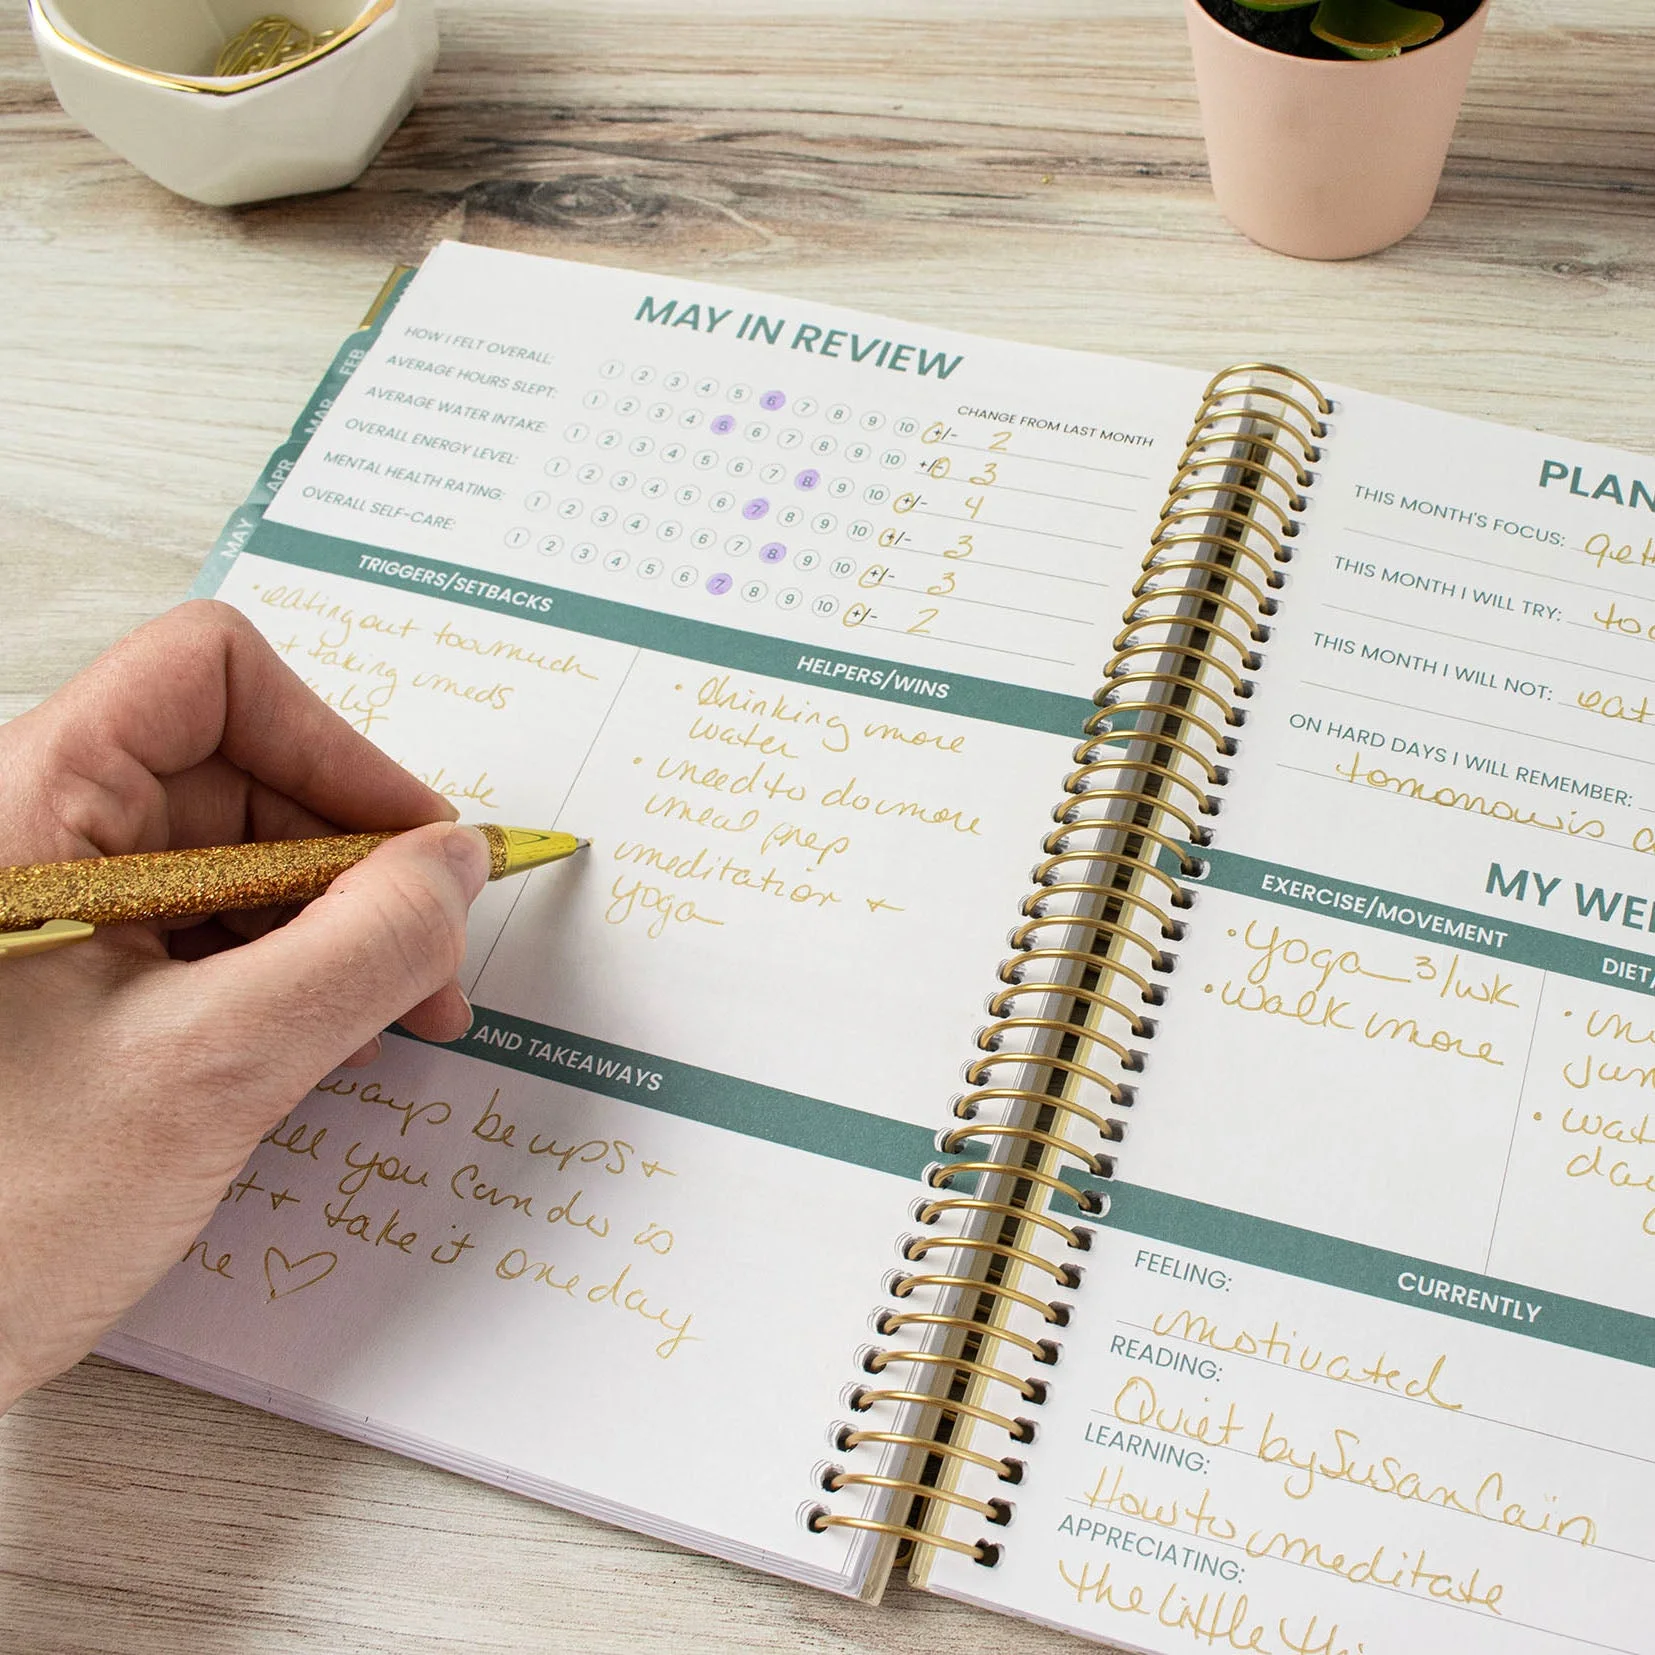 FEB
MAR
APR
MAY
MAY IN REVIEW
CHANGE FROM LAST MONTH
HOW I FELT OVERALL: 1 2 3 4 5 6 7 8 9 10 +/- 2
AVERAGE HOURS SLEPT: 1 2 3 4 5 6 7 8 9 10 +/- 3
AVERAGE WATER INTAKE: 1 2 3 4 5 6 7 8 9 10 +/- 4
OVERALL ENERGY LEVEL: 1 2 3 4 5 6 7 8 9 10 +/- 3
MENTAL HEALTH RATING: 1 2 3 4 5 6 7 8 9 10 +/- 3
OVERALL SELF-CARE: 1 2 3 4 5 6 7 8 9 10 +/- 2
TRIGGERS/SETBACKS
• eating out too much
taking meds
HELPERS/WINS
• drinking more
water
• need to do more
meal prep
meditation +
yoga
AND TAKEAWAYS
be ups +
you can do is
+ take it one day
♡
PLAN
THIS MONTH'S FOCUS:
THIS MONTH I WILL TRY:
THIS MONTH I WILL NOT: eat
ON HARD DAYS I WILL REMEMBER:
tomorrow is a
MY WEL
EXERCISE/MOVEMENT
• yoga 3/wk
• walk more
DIET/
CURRENTLY
FEELING:
motivated
READING:
Quiet by Susan Cain
LEARNING:
How to meditate
APPRECIATING:
the little thi